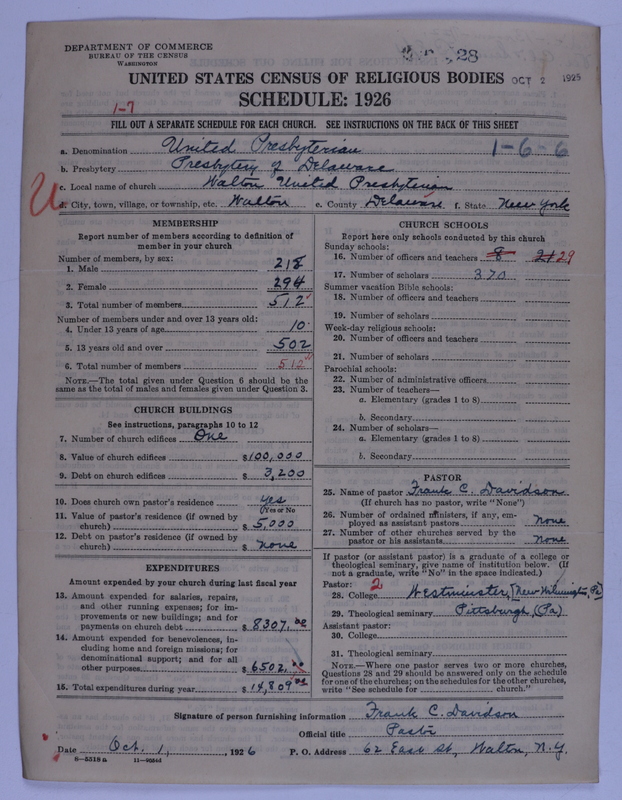 DEPARTMENT OF COMMERCE
BUREAU OF THE CENSUS
WASHINGTON
28
UNITED STATES CENSUS OF RELIGIOUS BODIES OCT 2 1926
SCHEDULE: 1926
1-7
FILL OUT A SEPARATE SCHEDULE FOR EACH CHURCH. SEE INSTRUCTIONS ON THE BACK OF THIS SHEET
a. Denomination United Presbyterian 1-6-6
b. Presbytery Presbytery of Delaware
c. Local name of church Walton United Presbyterian
d. City, town, village, or township, etc. Walton e. County Delaware f. State New York
MEMBERSHIP
Report number of members according to definition of
member in your church
Number of members, by sex:
1. Male 218
2. Female 294
3. Total number of members 512
Number of members under and over 13 years old:
4. Under 13 years of age 10
5. 13 years old and over 502
6. Total number of members 512
NOTE.—The total given under Question 6 should be the
same as the total of males and females given under Question 3.
CHURCH BUILDINGS
See instructions, paragraphs 10 to 12
7. Number of church edifices One
8. Value of church edifices $100,000
9. Debt on church edifices $ 3,200
10. Does church own pastor's residence yes
(Yes or No)
11. Value of pastor's residence (if owned by
church) $ 5,000
12. Debt on pastor's residence (if owned by
church) $ none
EXPENDITURES
Amount expended by your church during last fiscal year
13. Amount expended for salaries, repairs,
and other running expenses; for im-
provements or new buildings; and for
payments on church debt $ 8307.00
14. Amount expended for benevolences, in-
cluding home and foreign missions; for
denominational support; and for all
other purposes $ 6502.00
15. Total expenditures during year $ 14,809.00
CHURCH SCHOOLS
Report here only schools conducted by this church
Sunday schools:
16. Number of officers and teachers 8 21 29
17. Number of scholars 370
Summer vacation Bible schools:
18. Number of officers and teachers
19. Number of scholars
Week-day religious schools:
20. Number of officers and teachers
21. Number of scholars
Parochial schools:
22. Number of administrative officers
23. Number of teachers—
a. Elementary (grades 1 to 8)
b. Secondary
24. Number of scholars—
a. Elementary (grades 1 to 8)
b. Secondary
PASTOR
25. Name of pastor Frank C. Davidson
(If church has no pastor, write "None")
26. Number of ordained ministers, if any, em-
ployed as assistant pastors none
27. Number of other churches served by the
pastor or his assistants none
If pastor (or assistant pastor) is a graduate of a college or
theological seminary, give name of institution below. (If
not a graduate, write "No" in the space indicated.)
Pastor: 2
28. College Westminster, (New Wilmington, Pa)
29. Theological seminary Pittsburgh (Pa)
Assistant pastor:
30. College
31. Theological seminary
NOTE.—Where one pastor serves two or more churches,
Questions 28 and 29 should be answered only on the schedule
for one of the churches; on the schedules for the other churches,
write "See schedule for church."
Signature of person furnishing information Frank C. Davidson
Official title Pastor
Date Oct. 1, 1926 P. O. Address 62 East St, Walton, N.Y.
8—5518 a